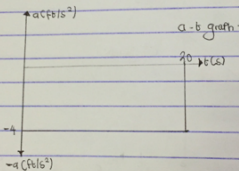 a(ft/s²)
a-t graph
20
t(s)
-4
-a(ft/s²)